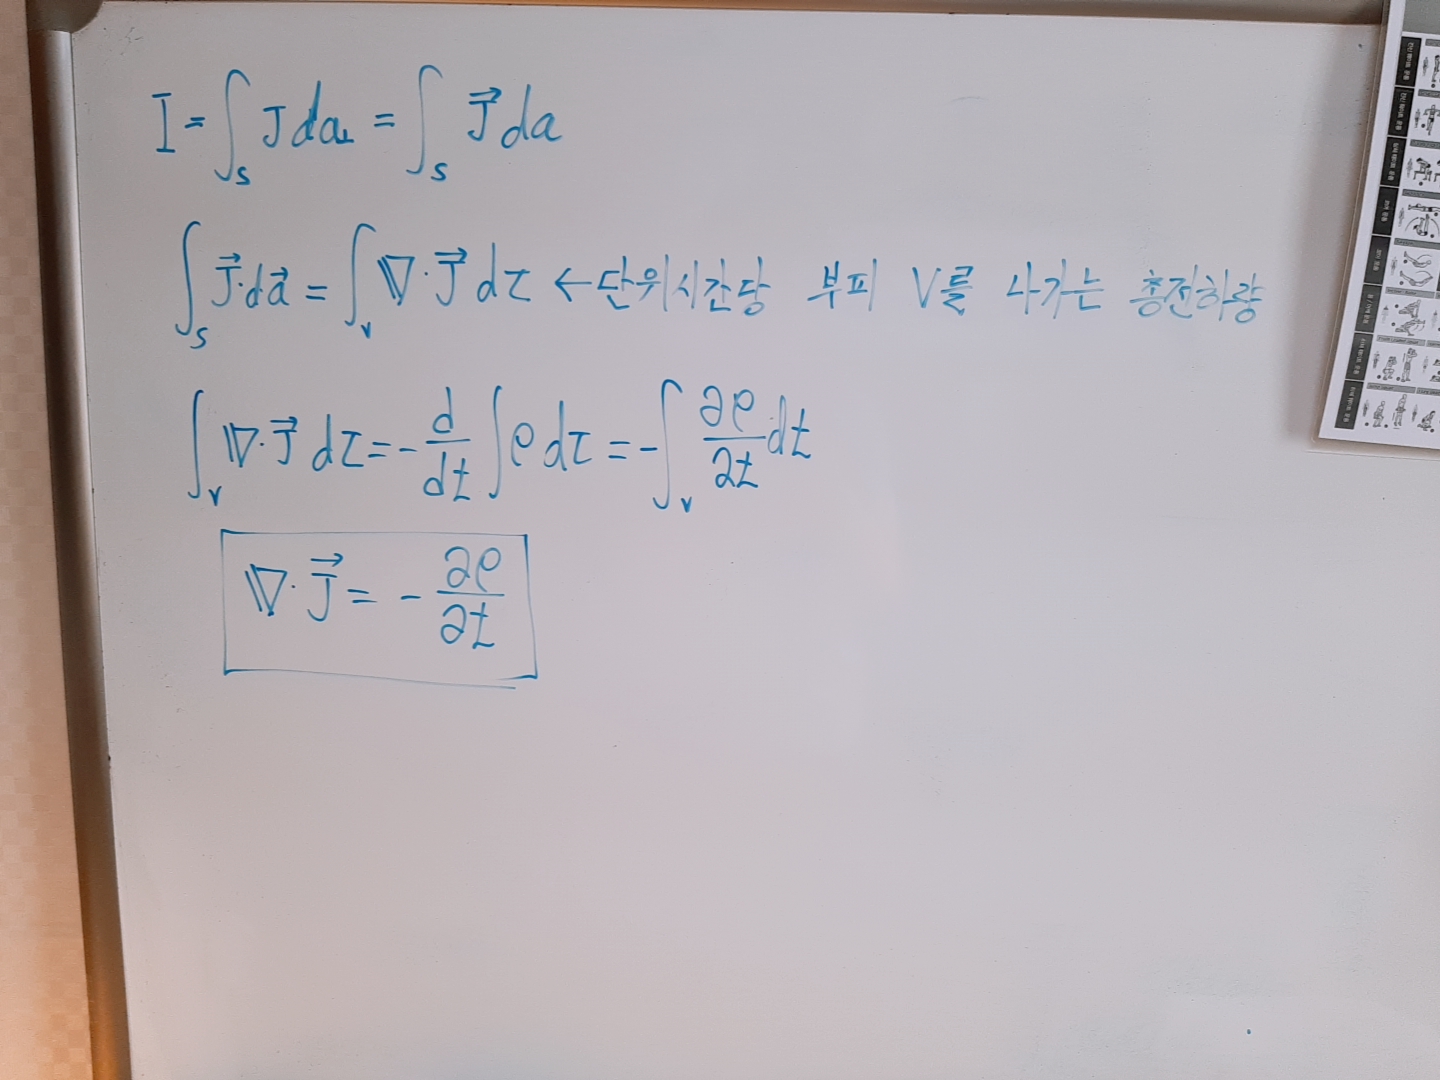 I = ∫_S J da⊥ = ∫_S J⃗ da
∫_S J⃗·da⃗ = ∫_V ∇·J⃗ dτ ← 단위시간당 부피 V를 나가는 총전하량
∫_V ∇·J⃗ dτ = - d/dt ∫ρ dτ = - ∫_V ∂ρ/∂t dt
∇·J⃗ = - ∂ρ/∂t